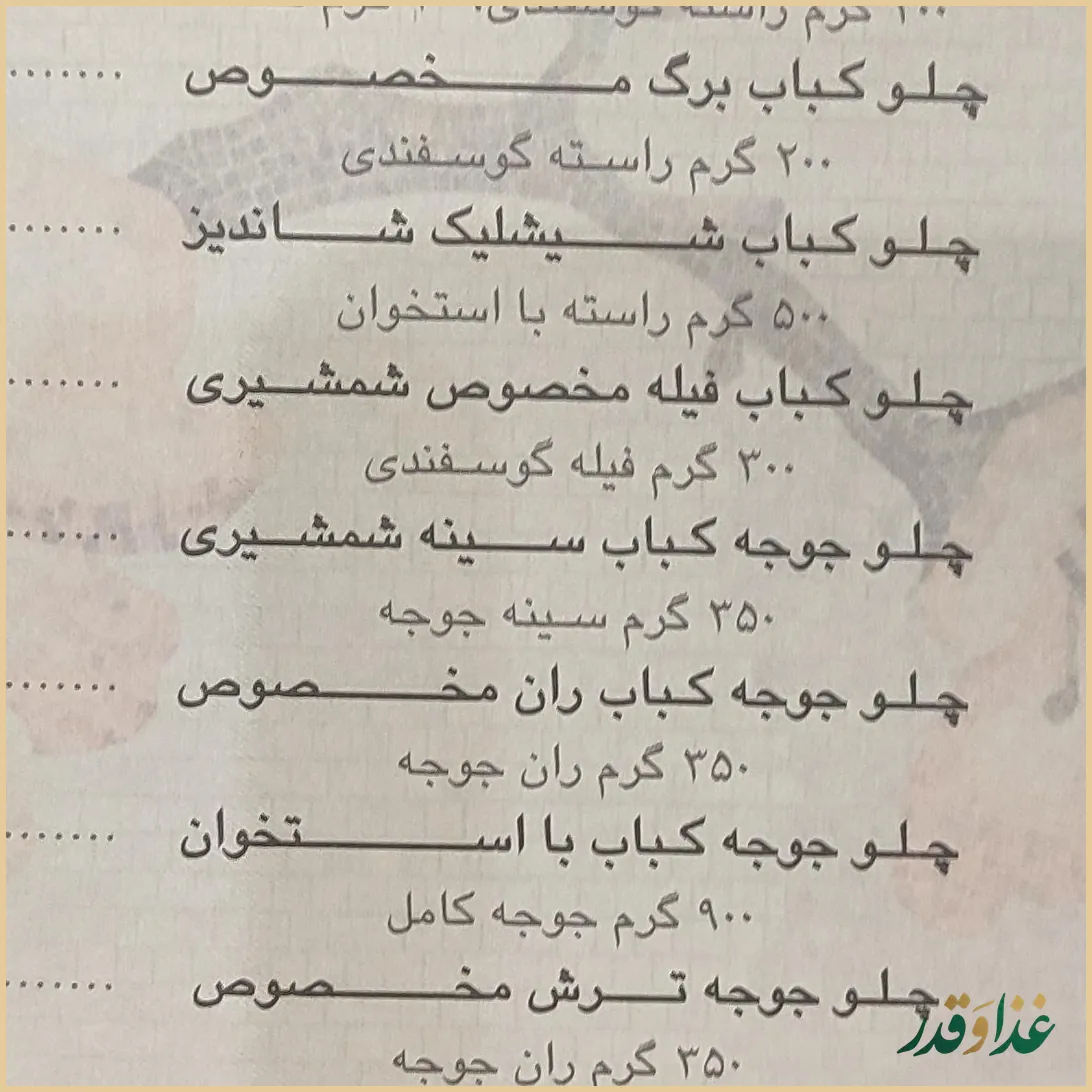 ۲۰۰ گرم راسته گوسفندی،
چلو کباب برگ مخصوص .......
۲۰۰ گرم راسته گوسفندی
چلو کباب شیشلیک شاندیز .......
۵۰۰ گرم راسته با استخوان
چلو کباب فیله مخصوص شمشیری .......
۳۰۰ گرم فیله گوسفندی
چلو جوجه کباب سینه شمشیری .......
۳۵۰ گرم سینه جوجه
چلو جوجه کباب ران مخصوص .......
۳۵۰ گرم ران جوجه
چلو جوجه کباب با استخوان .......
۹۰۰ گرم جوجه کامل
چلو جوجه ترش مخصوص .......
۳۵۰ گرم ران جوجه
غذا و قدر